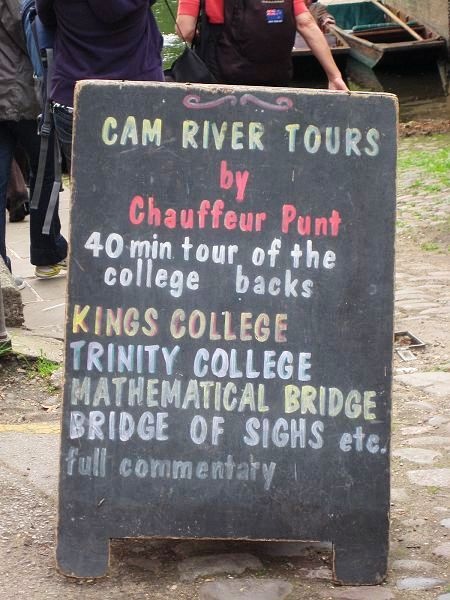 CAM RIVER TOURS
by
Chauffeur Punt
40 min tour of the
college backs
KINGS COLLEGE
TRINITY COLLEGE
MATHEMATICAL BRIDGE
BRIDGE OF SIGHS etc.
full commentary